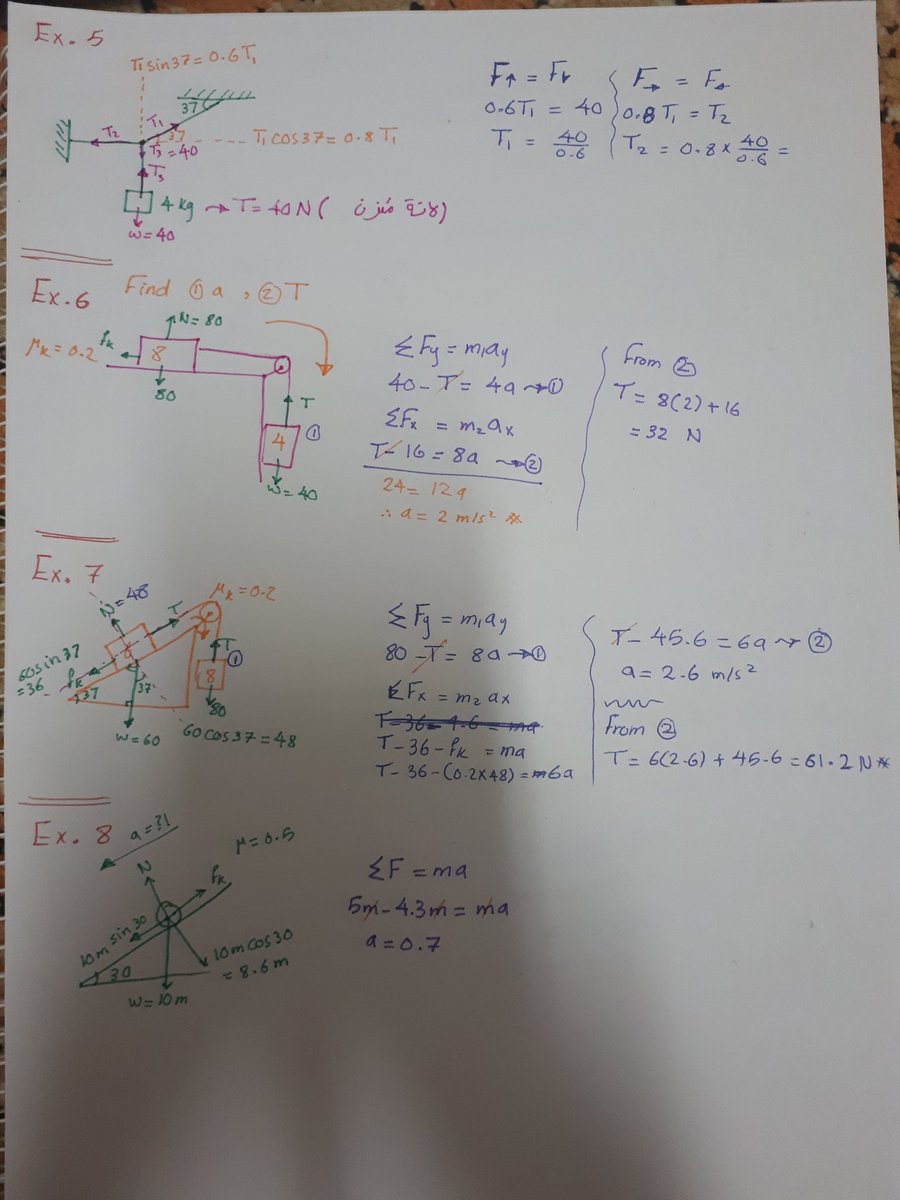 Ex. 5
T₁ sin37 = 0.6T₁
37
T₂
T₁
37
T₁ cos37 = 0.8 T₁
T₃ = 40
T₃
4 kg → T = 40N ( لانة متزن )
W = 40
F↑ = F↓
0.6T₁ = 40
T₁ = 40/0.6
F→ = F←
0.8 T₁ = T₂
T₂ = 0.8 × 40/0.6 =
Ex. 6 Find ① a , ② T
N = 80
μₖ = 0.2
fₖ
8
80
T
4
①
W = 40
ΣFy = m₁ay
40 - T = 4a → ①
ΣFx = m₂ax
T - 16 = 8a → ②
24 = 12a
∴ a = 2 m/s² *
From ②
T = 8(2) + 16
= 32 N
Ex. 7
N = 48
T
μₖ = 0.2
60 sin 37
= 36
fₖ
6
37
37
T
①
8
80
W = 60
60 cos 37 = 48
ΣFy = m₁ay
80 - T = 8a → ①
ΣFx = m₂ax
T - 36 - 9.6 = ma
T - 36 - fₖ = ma
T - 36 - (0.2×48) = m6a
T - 45.6 = 6a → ②
a = 2.6 m/s²
From ②
T = 6(2.6) + 45.6 = 61.2 N *
Ex. 8
a = ?!
μ = 0.5
N
fₖ
10m sin 30
10m cos 30
= 8.6 m
30
W = 10m
ΣF = ma
5m - 4.3m = ma
a = 0.7